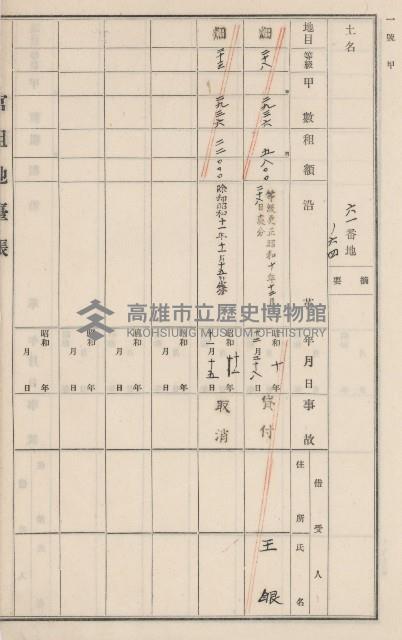 一號甲
土名
六一番地
ノ六四
摘要
地目
等級
甲數
租額
沿革
年月日
事故
借受人
住所
氏名
畑
二十八
二九三六
五八〇〇
等級更正昭和十年十二月
二十八日處分
昭和十年
十二月二十八日
貸付
王銀
畑
二十三
二九三六
二二〇〇
除却昭和十一年十二月十五日
昭和十一年
十二月十五日
取消
昭和年
月日
昭和年
月日
昭和年
月日
昭和年
月日
官租地臺帳
高雄市立歷史博物館
KAOHSIUNG MUSEUM OF HISTORY